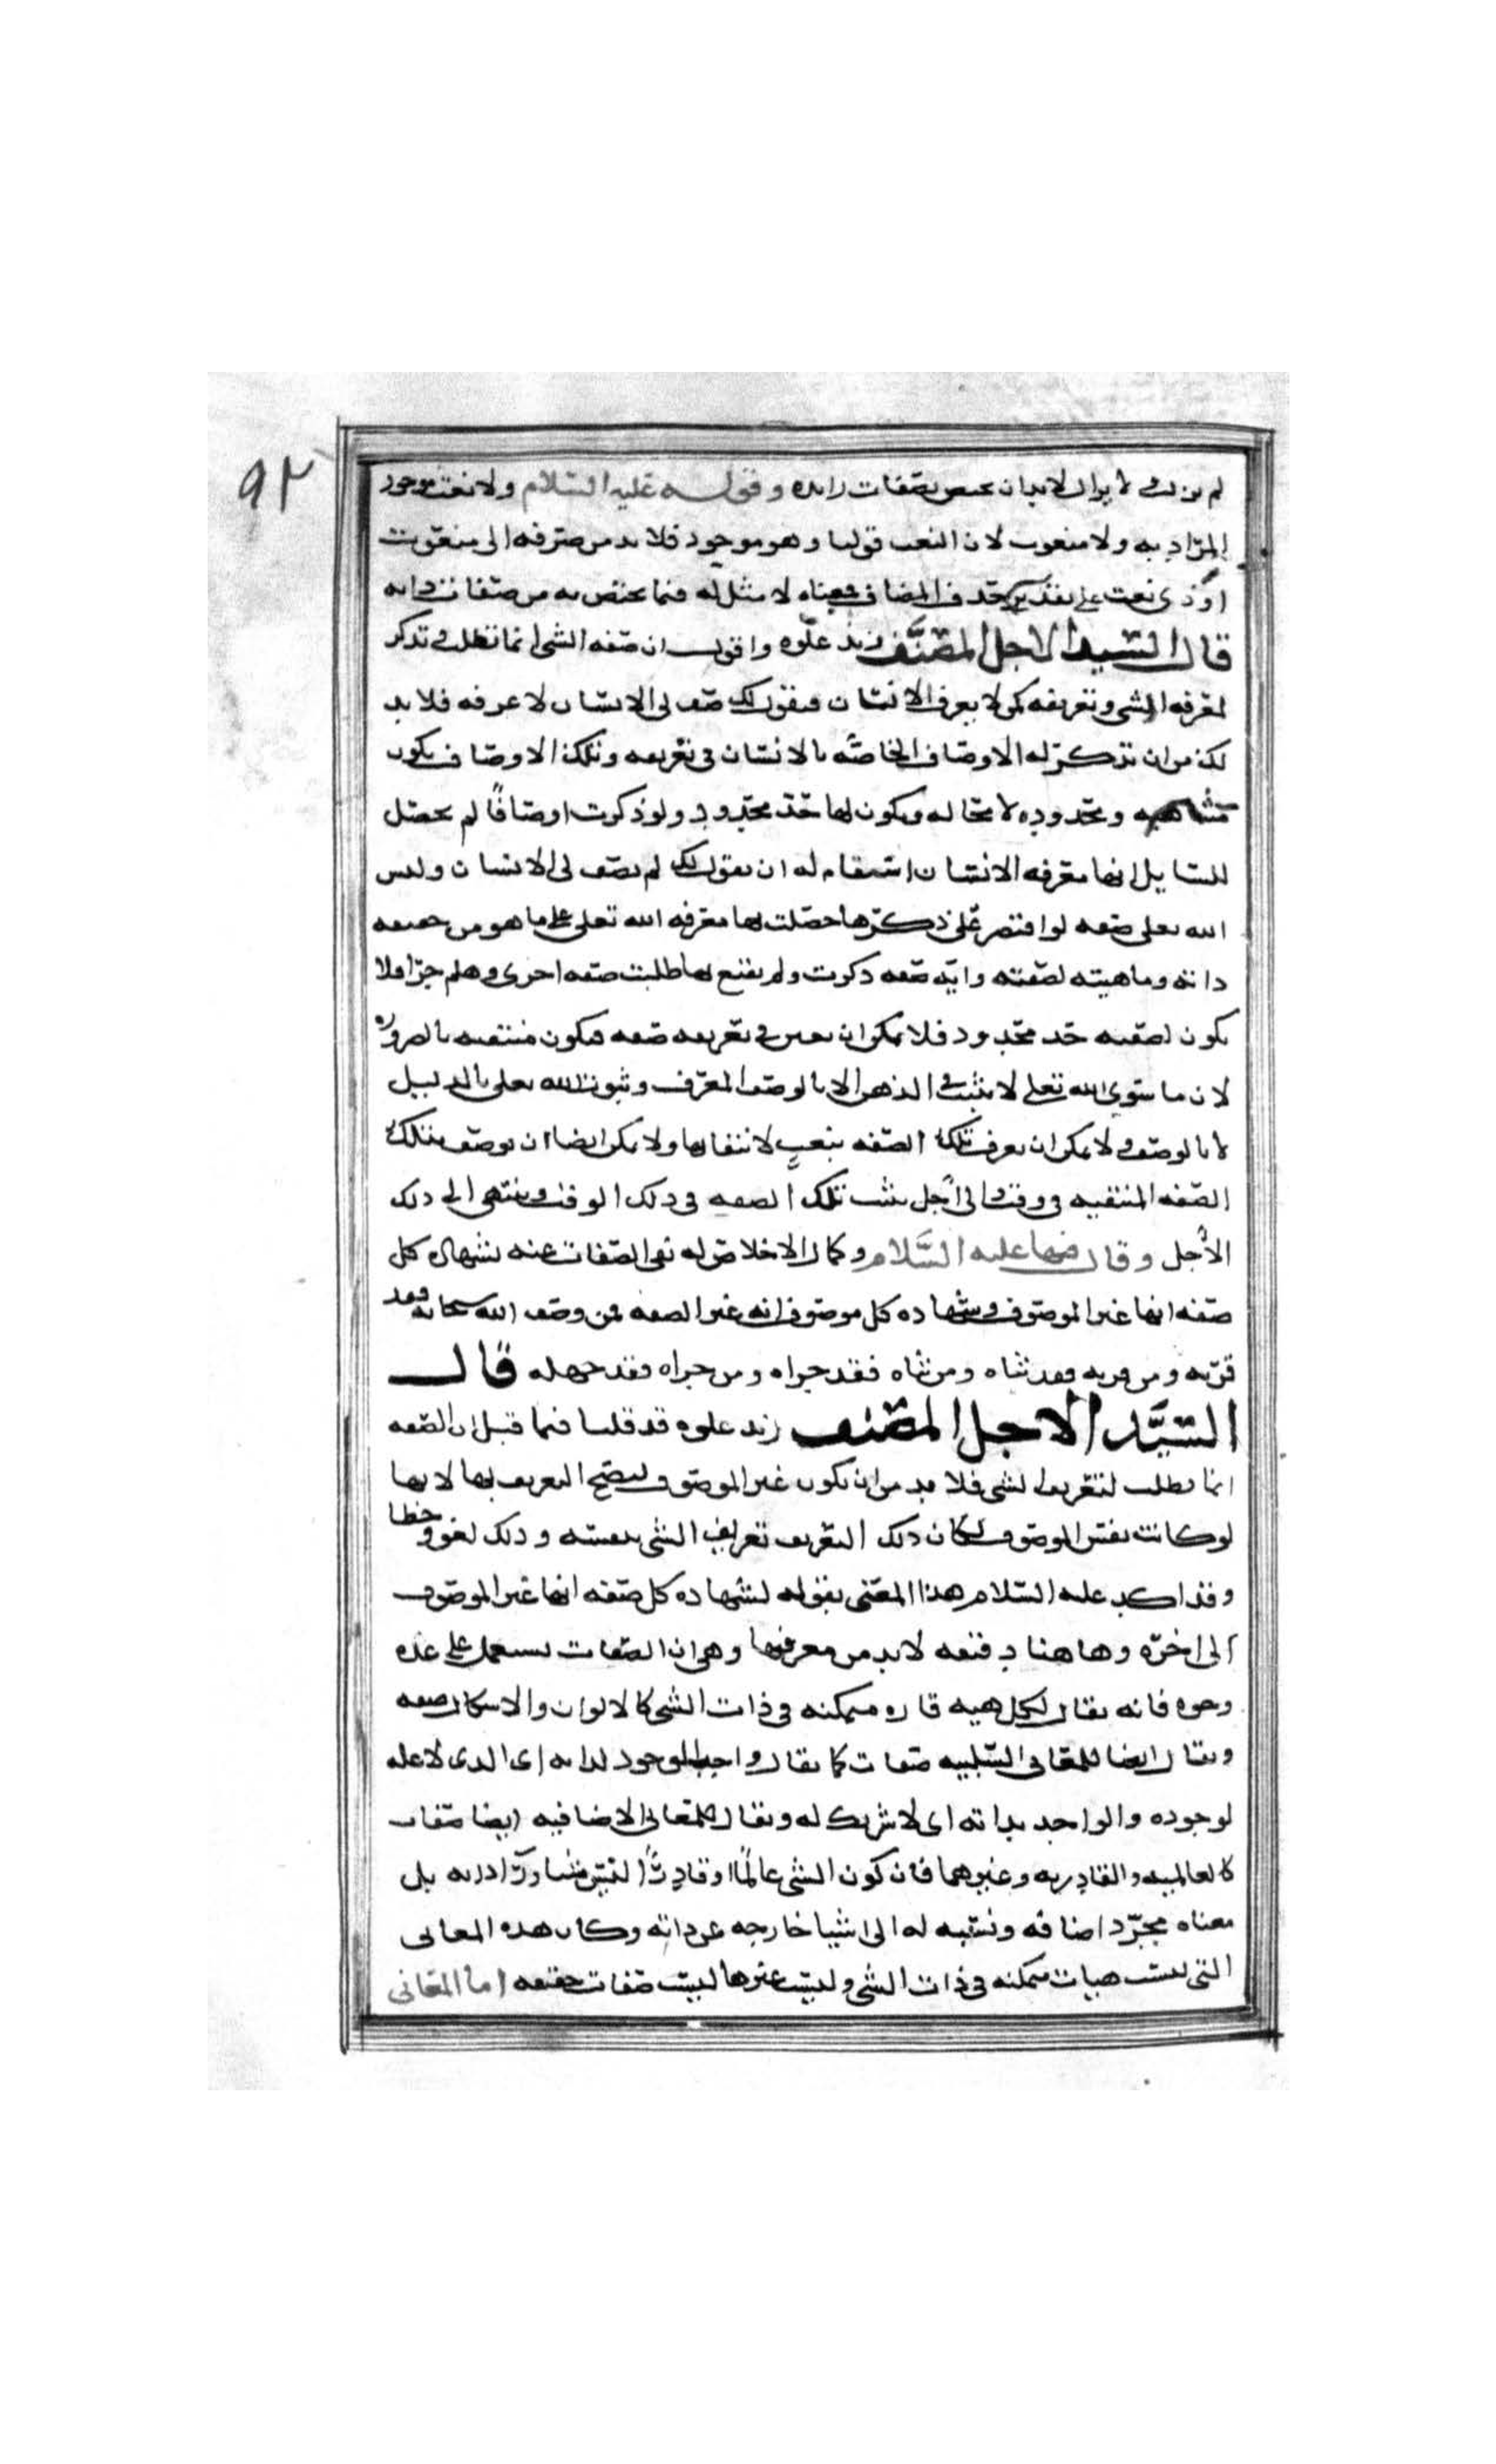 ٩٢
لم يزل ولا يزال لابد ان يختص بصفات زايده وقوله عليه السلام ولا نعت موجود
المراد به ولا منعوت لان النعت قولنا وهو موجود فلا بد من صرفه الى منعوت
او ذي نعت على تقدير حذف المضاف ومعناه لا مثل له فيما يختص به من صفات ذاته
قال السيد الاجل المصنف زيد علوه واقول ان صفه الشي انما تطلب وتذكر
لمعرفه الشي وتعريفه كمن لا يعرف الانسان فيقول لك صف لي الانسان لاعرفه فلا بد
لك من ان تذكر له الاوصاف الخاصه بالانسان في تعريفه وتلك الاوصاف يكون
متناهيه ومحدوده لا محاله ويكون لها حد محدود ولو ذكرت اوصافًا لم يحصل
للسايل بها معرفه الانسان استقام له ان يقول لك لم تصف لي الانسان وليس
الله تعلى صفه لو اقتصر على ذكرها حصلت بها معرفه الله تعلى على ما هو من حقيقه
ذاته وماهيته لصفته وايّه صفه ذكرت ولم يقنع بها طلبت صفه اخرى وهلم جرّا فلا
يكون لصفته حد محدود فلا يمكن ان تعين في تعريفه صفه فيكون منتفيه بالضروره
لان ما سوى الله تعلى لا يثبت في الذهن الا بالوصف المعرف وثبوت الله تعلى بالدليل
لا بالوصف ولا يمكن ان يعرف تلك الصفه بنعتٍ لانتفايها ولا يمكن ايضا ان يوصف بتلك
الصفه المنتفيه في وقت والى اجل يثبت تلك الصفه في ذلك الوقت وينتهى الى ذلك
الاجل وقال فيها عليه السلام وكمال الاخلاص له نفي الصفات عنه بشهاده كل
صفه انها غير الموصوف وشهاده كل موصوف انه غير الصفه فمن وصف الله سبحانه فقد
قرنه ومن قرنه فقد ثناه ومن ثناه فقد جزاه ومن جزاه فقد جهله قال
السيّد الاجل المصنف زيد علوه قد قلنا فيما قبل ان الصفه
انما تطلب لتعريف الشي فلا بد من ان يكون غير الموصوف ليصح التعريف بها لانها
لو كانت نفس الموصوف لكان ذلك التعريف تعريف الشي بنفسه وذلك لغو وخطا
وقد اكد عليه السلام هذا المعنى بقوله لشهاده كل صفه انها غير الموصوف
الى اخره وهاهنا دقيقه لابد من معرفتها وهي ان الصفات تستعمل على عده
وجوه فانه يقال لكل هيه قاره متمكنه في ذات الشي كالالوان والاشكال صفه
ويقال ايضا للمعاني السلبيه صفات كما يقال واجب الوجود لذاته اى الذي لا عله
لوجوده والواحد بذاته اى لا شريك له ويقال للمعاني الاضافيه ايضا صفات
كالعالميه والقادريه وغيرهما فان كون الشي عالمًا او قادرًا ليس امرًا في ذاته بل
معناه مجرّد اضافه ونسبه له الى اشيا خارجه عن ذاته وكان هذه المعاني
التي ليست هيات متمكنه في ذات الشي وليست غيرها ليست صفات حقيقيه اما المعاني